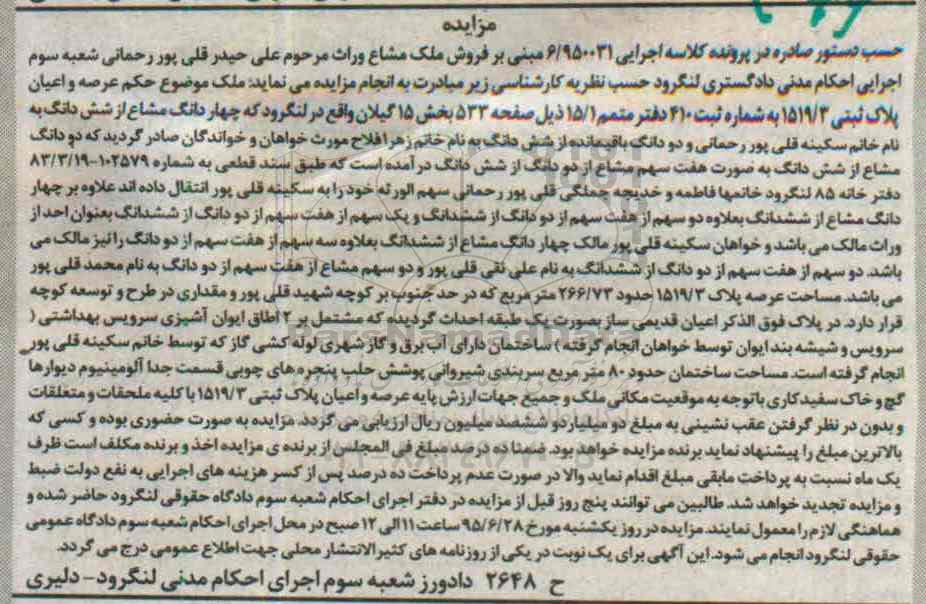 مزایده
حسب دستور صادره در پرونده کلاسه اجرایی ۶/۹۵۰۰۳۱ مبنی بر فروش ملک مشاع وراث مرحوم علی حیدر قلی پور رحمانی شعبه سوم
اجرایی احکام مدنی دادگستری لنگرود حسب نظریه کارشناسی زیر مبادرت به انجام مزایده می نماید: ملک موضوع حکم عرصه و اعیان
پلاک ثبتی ۱۵۱۹/۳ به شماره ثبت ۴۱۰ دفتر متمم ۱۵/۱ ذیل صفحه ۵۳۳ بخش ۱۵ گیلان واقع در لنگرود که چهار دانگ مشاع از شش دانگ به
نام خانم سکینه قلی پور رحمانی و دو دانگ باقیمانده از شش دانگ به نام خانم زهرا فلاح مورث خواهان و خواندگان صادر گردید که دو دانگ
مشاع از شش دانگ به صورت هفت سهم مشاع از دو دانگ از شش دانگ در آمده است که طبق سند قطعی به شماره ۱۰۲۵۷۹-۸۳/۳/۱۹
دفتر خانه ۸۵ لنگرود خانمها فاطمه و خدیجه جملگی قلی پور رحمانی سهم الورثه خود را به سکینه قلی پور انتقال داده اند علاوه بر چهار
دانگ مشاع از ششدانگ بعلاوه دو سهم از هفت سهم از دو دانگ از ششدانگ و یک سهم از هفت سهم از دو دانگ از ششدانگ بعنوان احد از
وراث مالک می باشد و خواهان سکینه قلی پور مالک چهار دانگ مشاع از ششدانگ بعلاوه سه سهم از هفت سهم از دو دانگ را نیز مالک می
باشد. دو سهم از هفت سهم از دو دانگ از ششدانگ به نام علی نقی قلی پور و دو سهم مشاع از هفت سهم از دو دانگ به نام محمد قلی پور
می باشد. مساحت عرصه پلاک ۱۵۱۹/۳ حدود ۲۶۶/۷۳ متر مربع که در حد جنوب بر کوچه شهید قلی پور و مقداری در طرح و توسعه کوچه
قرار دارد. در پلاک فوق الذکر اعیان قدیمی ساز بصورت یک طبقه احداث گردیده که مشتمل بر ۲ اطاق ایوان آشپزی سرویس بهداشتی (
سرویس و شیشه بند ایوان توسط خواهان انجام گرفته) ساختمان دارای آب برق و گاز شهری لوله کشی گاز که توسط خانم سکینه قلی پور
انجام گرفته است. مساحت ساختمان حدود ۸۰ متر مربع سربندی شیروانی پوشش حلب پنجره های چوبی قسمت جدا آلومینیوم دیوارها
گچ و خاک سفید کاری با توجه به موقعیت مکانی ملک و جمیع جهات ارزش پایه عرصه و اعیان پلاک ثبتی ۱۵۱۹/۳ با کلیه ملحقات و متعلقات
و بدون در نظر گرفتن عقب نشینی به مبلغ دو میلیارد و ششصد میلیون ریال ارزیابی می گردد. مزایده به صورت حضوری بوده و کسی که
بالاترین مبلغ را پیشنهاد نماید برنده مزایده خواهد بود. ضمنا ده درصد مبلغ فی المجلس از برنده ی مزایده اخذ و برنده مکلف است ظرف
یک ماه نسبت به پرداخت مابقی مبلغ اقدام نماید والا در صورت عدم پرداخت ده درصد پس از کسر هزینه های اجرایی به نفع دولت ضبط
و مزایده تجدید خواهد شد. طالبین می توانند پنج روز قبل از مزایده در دفتر اجرای احکام شعبه سوم دادگاه حقوقی لنگرود حاضر شده و
هماهنگی لازم را معمول نمایند. مزایده در روز یکشنبه مورخ ۹۵/۶/۲۸ ساعت ۱۱ الی ۱۲ صبح در محل اجرای احکام شعبه سوم دادگاه عمومی
حقوقی لنگرود انجام می شود. این آگهی برای یک نوبت در یکی از روزنامه های کثیرالانتشار محلی جهت اطلاع عمومی درج می گردد.
ح ۲۶۴۸ دادورز شعبه سوم اجرای احکام مدنی لنگرود- دلیری